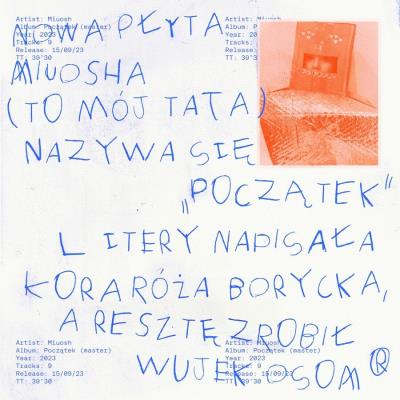 Artist: Miuosh
Album: Początek (master)
Year: 2023
Tracks: 9
Release: 15/09/23
TT: 39'30
Artist: Miuosh
Album: Początek (master)
Release: 15/09/23
TT: 39'30
NOWA PŁYTA
MIUOSHA
(TO MÓJ TATA)
NAZYWA SIĘ
„POCZĄTEK"
LITERY NAPISAŁA
KORA RÓŻA BORYCKA,
A RESZTĘ ZROBIŁ
WUJEK OSOM ®
Artist: Miuosh
Album: Początek (master)
Year: 2023
Tracks: 9
Release: 15/09/23
TT: 39'30
Artist: Miuosh
Album: Początek (master)
Year: 2023
Tracks: 9
Release: 15/09/23
TT: 39'30